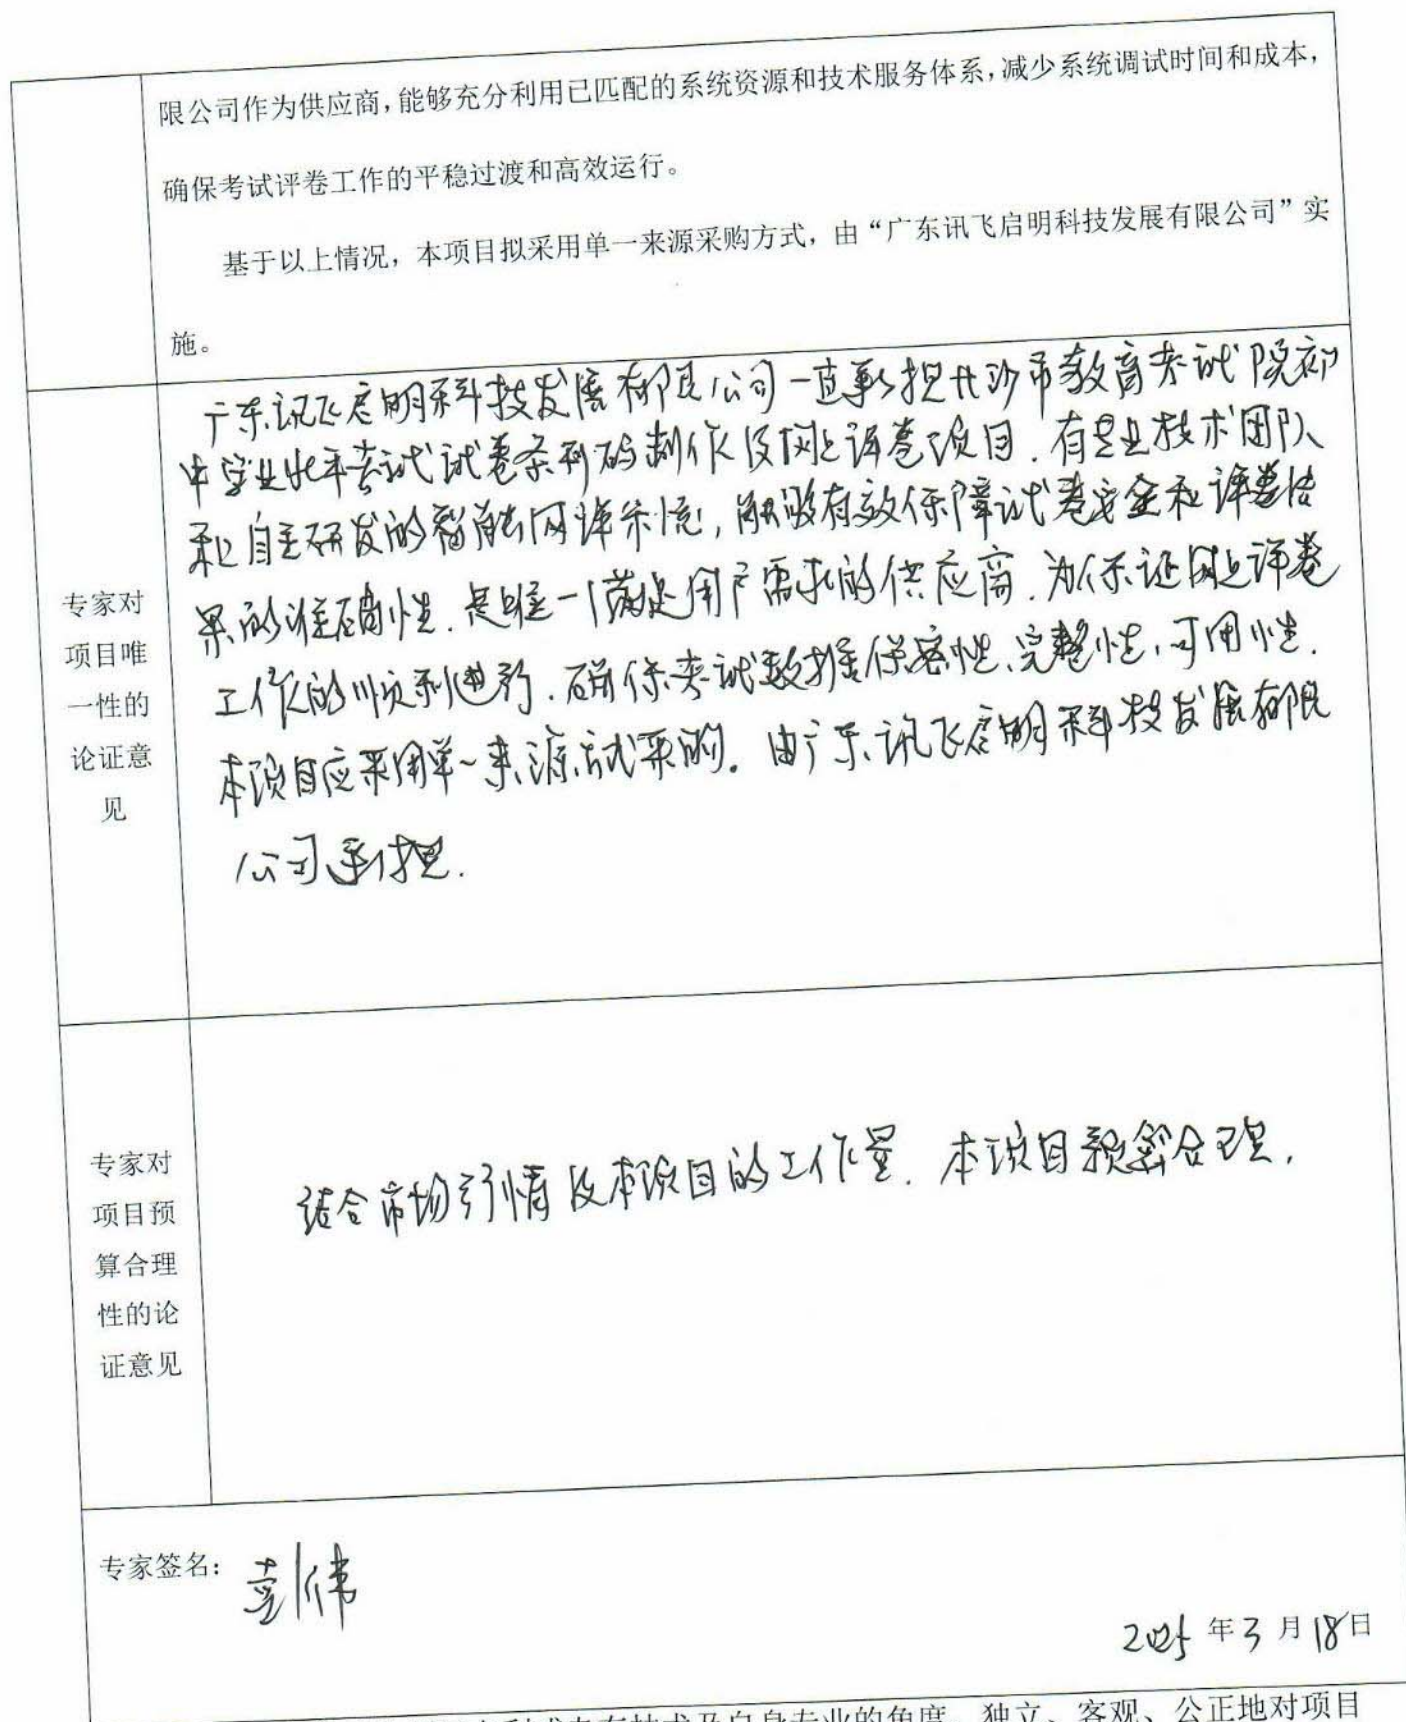 限公司作为供应商，能够充分利用已匹配的系统资源和技术服务体系，减少系统调试时间和成本，
确保考试评卷工作的平稳过渡和高效运行。
基于以上情况，本项目拟采用单一来源采购方式，由“广东讯飞启明科技发展有限公司”实
施。
专家对
项目唯
一性的
论证意
见
广东讯飞启明科技发展有限公司一直承担长沙市教育考试院初
中学业水平考试试卷条形码制作及网上评卷项目．有专业技术团队
和自主研发的智能网评系统，能够有效保障试卷安全和评卷结
果的准确性．是唯一满足用户需求的供应商．为保证网上评卷
工作的顺利进行．确保考试数据保密性、完整性，可用性．
本项目应采用单一来源方式采购。由广东讯飞启明科技发展有限
公司承担．
专家对
项目预
算合理
性的论
证意见
结合市场行情及本项目的工作量．本项目预算合理．
专家签名：彭伟
2025年3月18日
及自身专业的角度，独立、客观、公正地对项目